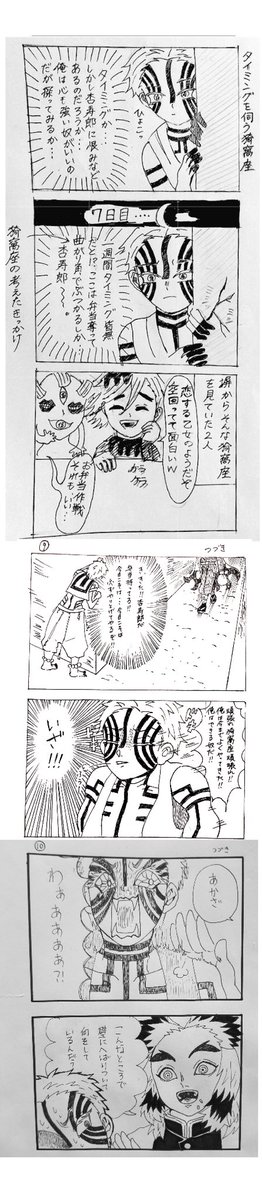 タイミングを伺う猗窩座
ひょこっ…
タイミングか…
しかし杏寿郎に恨みなど
あるのだろうか…
俺は心も強い奴がいいの
だが探ってみるか…
7日目…
一週間タイミング皆無
だと!?ここは弁当奪って
曲がり角でぶつかるしか…
→杏寿郎〜〜。
猗窩座の考えたきっかけ
塀からそんな猗窩座
を見ていた2人
恋する乙女のようだぞ
空回ってて面白いw
ケラケラ
お弁当作戦
それもいい…
⑨
つづき
きっきた!!杏寿郎が
弁当持ってる!!
頑張れ猗窩座頑張れ!!
俺は今までよくやってきた!!
俺はできる奴だ!!
いざ!!!
⑩
つづき
あかざ
わぁ
ああああ?!
こんなところで
壁にへばりついて
何をして
いるんだ?